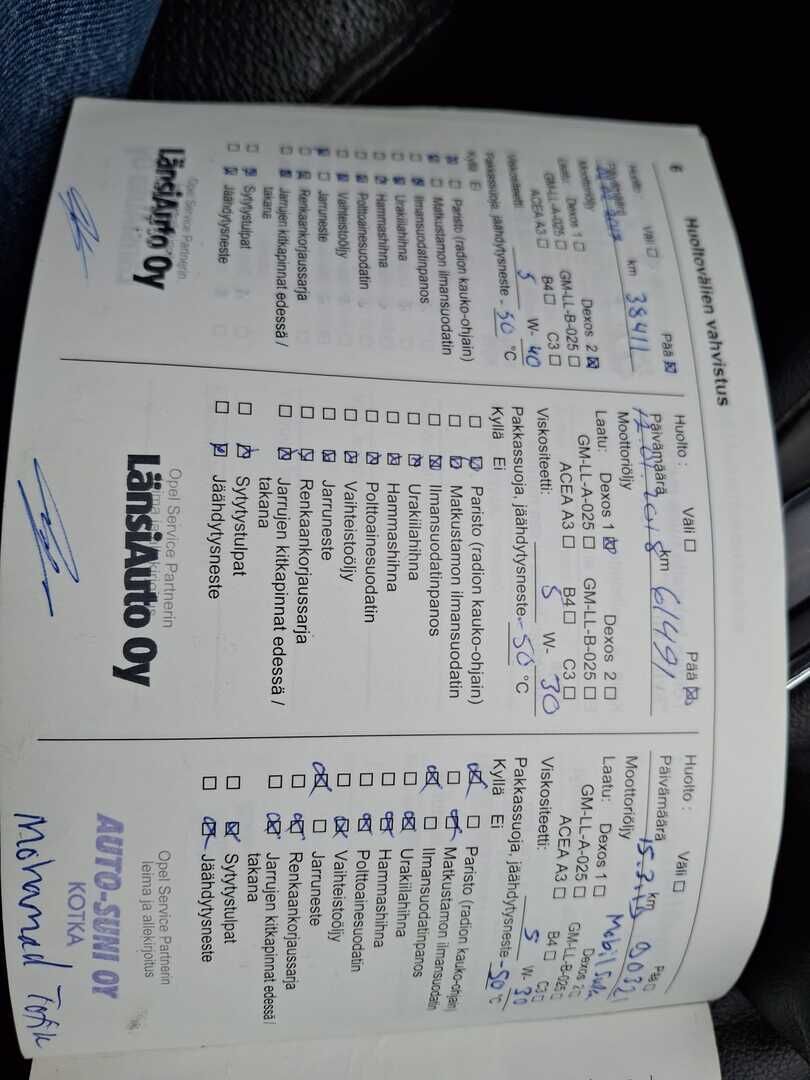 6
Huoltovälien vahvistus
Huolto: Väli Pää
km 38411
Moottoriöljy
Laatu: Dexos 1 Dexos 2
GM-LL-A-025 GM-LL-B-025
ACEA A3 B4 C3
Viskositeetti: 5 W- 40
Pakkassuoja, jäähdytysneste - 50 °C
Kyllä Ei
Paristo (radion kauko-ohjain)
Matkustamon ilmansuodatin
Ilmansuodatinpanos
Urakiilahihna
Hammashihna
Polttoainesuodatin
Vaihteistoöljy
Jarruneste
Renkaankorjaussarja
Jarrujen kitkapinnat edessä /
takana
Sytytystulpat
Jäähdytysneste
Opel Service Partnerin
LänsiAuto Oy
Huolto : Väli Pää
Päivämäärä km 61491
Moottoriöljy
Laatu: Dexos 1 Dexos 2
GM-LL-A-025 GM-LL-B-025
ACEA A3 B4 C3
Viskositeetti: 5 W- 30
Pakkassuoja, jäähdytysneste -50 °C
Kyllä Ei
Paristo (radion kauko-ohjain)
Matkustamon ilmansuodatin
Ilmansuodatinpanos
Urakiilahihna
Hammashihna
Polttoainesuodatin
Vaihteistoöljy
Jarruneste
Renkaankorjaussarja
Jarrujen kitkapinnat edessä /
takana
Sytytystulpat
Jäähdytysneste
Opel Service Partnerin
leima ja allekirjoitus
LänsiAuto Oy
Huolto : Väli Pää
Päivämäärä km
Moottoriöljy Mobil
Laatu: Dexos 1 Dexos 2
GM-LL-A-025 GM-LL-B-025
ACEA A3 B4 C3
Viskositeetti: 5 W- 30
Pakkassuoja, jäähdytysneste -50 °C
Kyllä Ei
Paristo (radion kauko-ohjain)
Matkustamon ilmansuodatin
Ilmansuodatinpanos
Urakiilahihna
Hammashihna
Polttoainesuodatin
Vaihteistoöljy
Jarruneste
Renkaankorjaussarja
Jarrujen kitkapinnat edessä /
takana
Sytytystulpat
Jäähdytysneste
Opel Service Partnerin
leima ja allekirjoitus
AUTO-SUNI OY
KOTKA
Mohamad Tofik